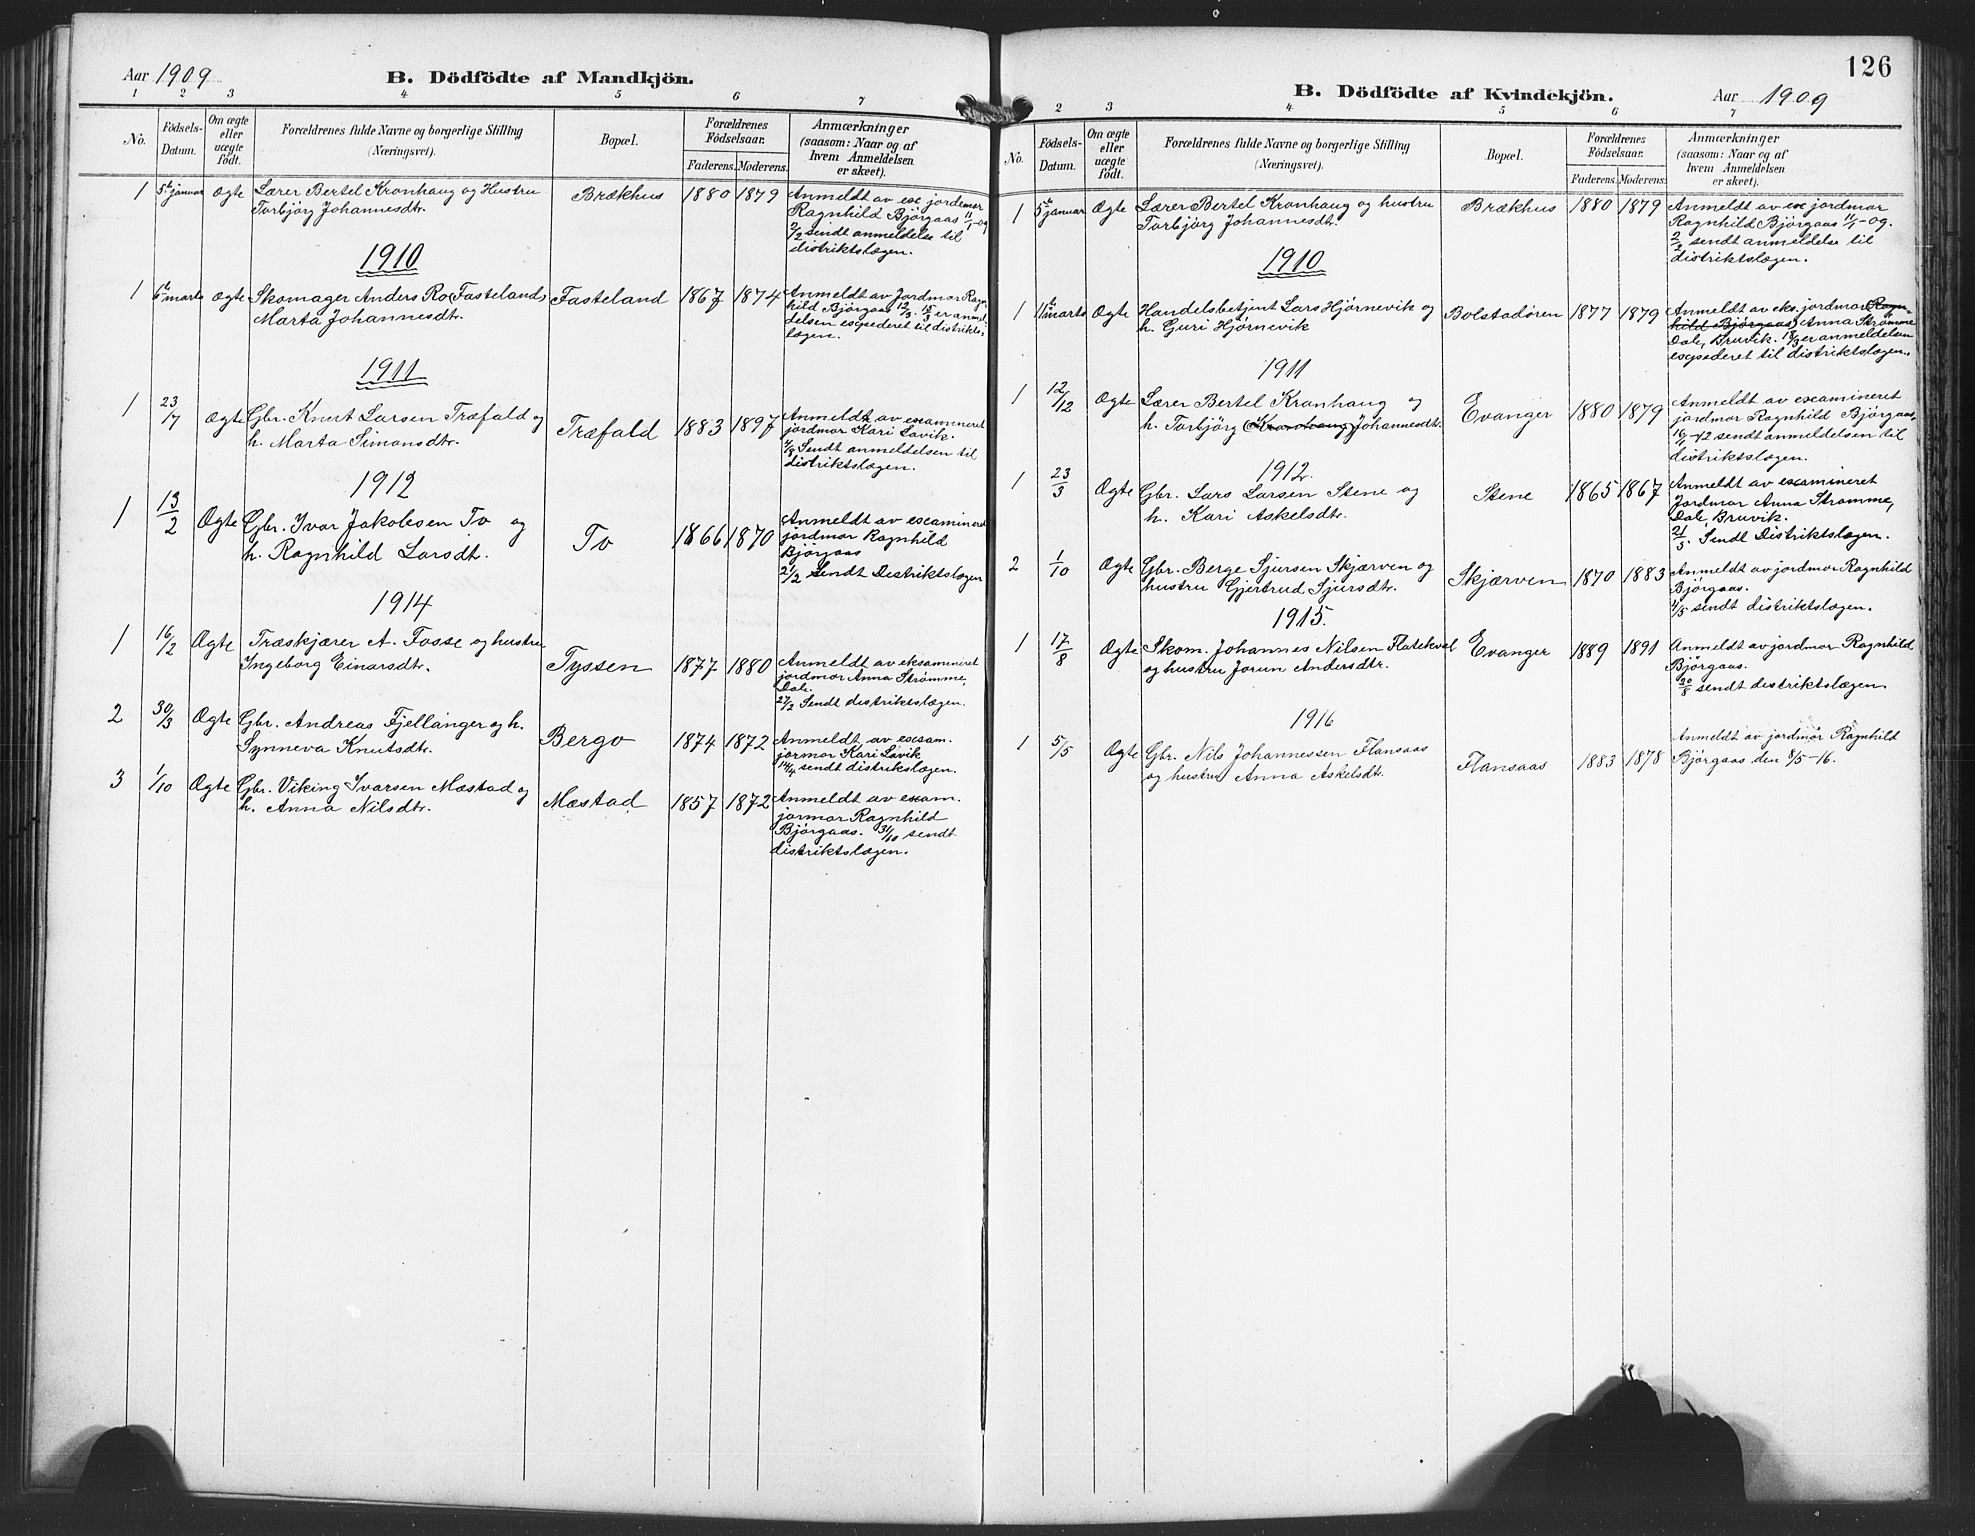 Aar 1909
B. Dödfödte af Mandkjön.
1 2 3 4 5 6 7
No.
Födsels-
Datum.
Om ægte
eller
uægte
födt.
Forældrenes fulde Navne og borgerlige Stilling
(Næringsvei).
Bopæl.
Forældrenes
Födselsaar.
Faderens. Moderens.
Anmærkninger
(saasom: Naar og af
hvem Anmeldelsen
er skeet).
1 5te januar Ægte Lærer Bertel Kronhaug og Hustru
Torbjörg Johannesdtr. Brækhus 1880 1879
Anmeldt av ex jordemor
Ragnhild Björgaas 11/1-09
2/2 sendt anmeldelse til
distriktslægen.
1910
1 6te marts Ægte Skomager Anders Ro (Fasteland)
Marta Johannesdtr. Fasteland 1867 1874
Anmeldt av Jordmor Ragn-
hild Björgaas 12/3. 15/3 er anmel
delsen expederet til distrikts-
lægen.
1911
1 23/7 Ægte Gbr. Knut Larsen Træfald og
h. Marta Simonsdtr. Træfald 1883 1897
Anmeldt av examineret
jordmor Kari Lavik.
4/8 Sendt anmeldelsen til
distriktslægen.
1912
1 13/2 Ægte Gbr. Ivar Jakobsen Tv og
h. Ragnhild Larsdt. Tv 1866 1870
Anmeldt av examineret
jordmor Ragnhild
Björgaas
21/2 sendt Distriktslægen
1914
1 16/2 Ægte Træskjærer A. Fosse og hustru
Ingeborg Einarsdtr. Tyssen 1877 1880
Anmeldt av eksamineret
jordmor Anna Strømme,
Dale.
27/2 Sendt distriktslægen.
2 30/3 Ægte Gbr. Andreas Fjellanger og h.
Synneva Knutsdtr. Bergo 1874 1872
Anmeldt av exsam.
jormor Kari Lavik
14/4 sendt distrikslægen.
3 1/10 Ægte Gbr. Viking Ivarsen Mæstad og
h. Anna Nilsdtr. Mæstad 1857 1872
Anmeldt av exam.
jormor Ragnhild
Björgaas. 31/10 sendt
distriktslægen.
126
B. Dödfödte af Kvindekjön.
Aar 1909
2 3 4 5 6 7
No.
Födsels-
Datum.
Om ægte
eller
uægte
födt.
Forældrenes fulde Navne og borgerlige Stilling
(Næringsvei).
Bopæl.
Forældrenes
Födselsaar.
Faderens. Moderens.
Anmærkninger
(saasom: Naar og af
hvem Anmeldelsen
er skeet).
1 5te januar Ægte Lærer Bertel Kronhaug og hustru
Torbjörg Johannesdtr. Brækhus 1880 1879
Anmeldt av ex jordmor
Ragnhild Björgaas 11/1-09.
2/2 sendt anmeldelse til
distriktslægen.
1910
1 11te marts Ægte Handelsbetjent Lars Hjørnevik og
h. Guri Hjørnevik Bolstadøren 1877 1879
Anmeldt av eks. jordmor Ragn-
hild Björgaas) Anna Strømme
Dale, Bruvik. 18/3 er anmeldelsen
expederet til distriktslægen.
1911
1 12/12 Ægte Lærer Bertel Kronhaug og
h. Torbjörg (Kronhaug) Johannesdtr. Evanger 1880 1879
Anmeldt av examineret
jordmor Ragnhild Björgaas,
10/1-12 sendt anmeldelsen til
distriktslægen.
1912.
1 23/3 Ægte Gbr. Lars Larsen Stene og
h. Kari Askelsdtr. Stene 1865 1867
Anmeldt av examineret
Jordmor Anna Strømme,
Dale Bruvik.
21/5. Sendt Distriktslægen.
2 1/10 Ægte Gbr. Berge Sjursen Skjærven og
hustru Gjertrud Sjursdtr. Skjærven 1870 1883
Anmeldt av jordmor Ragnhild
Björgaas.
4/5 sendt distriktslægen.
1915.
1 17/8 Ægte Skom. Johannes Nilsen Flatekval
og hustru Jorun Andersdtr. Evanger 1889 1891
Anmeldt av jordmor Ragnhild
Björgaas.
30/8 sendt distriktslægen
1916
1 5/5 Ægte Gbr. Nils Johannessen Flansaas
og hustru Anna Askelsdt. Flansaas 1883 1878
Anmeldt av jordmor Ragnhild
Björgaas den 8/5-16.